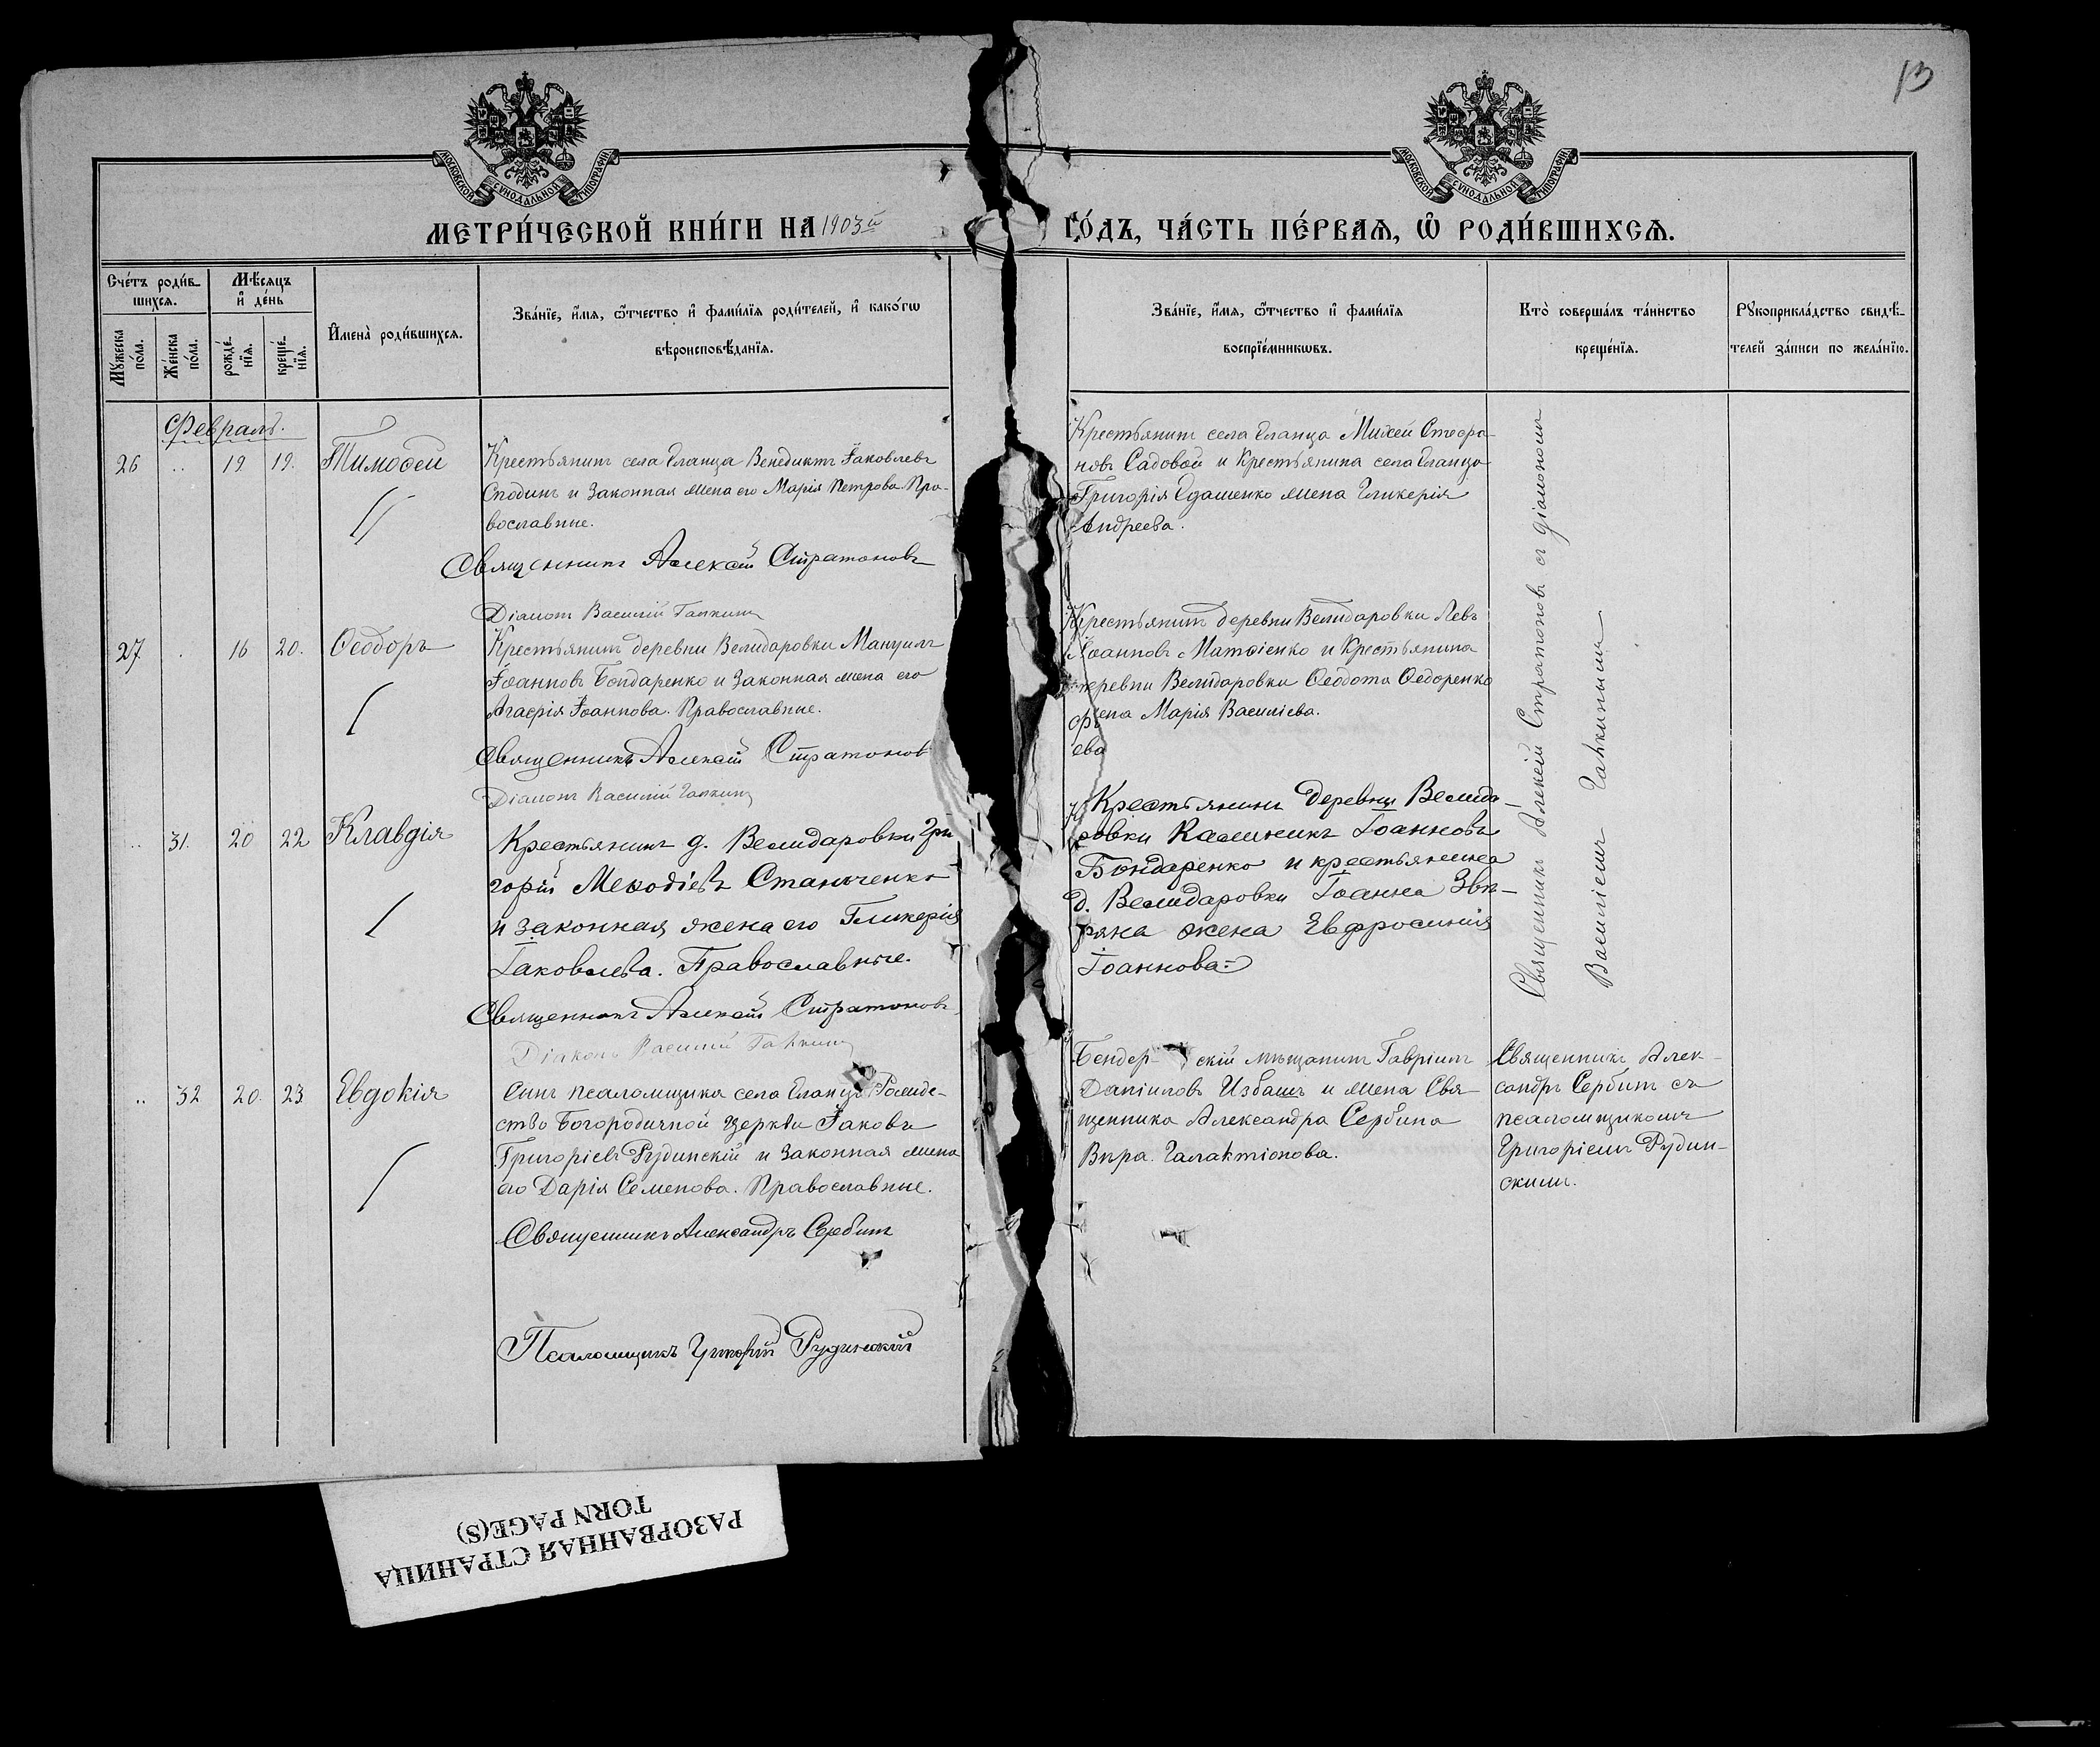 13
МОСКОВСКОЙ СѴНОДАЛЬНОЙ ТИПОГРАФІИ
МОСКОВСКОЙ СѴНОДАЛЬНОЙ ТИПОГРАФІИ
МЕТРИ́ЧЕСКОЙ КНИ́ГИ НА 1903й
ГО́ДЪ, ЧА́СТЬ ПЕ́РВАѦ, Ѡ҆ РОДИ́ВШИХСѦ.
Сче́тъ роди́в-
шихсѧ.
Мѣ́сѧцъ
и҆ де́нь
Мꙋ́жеска
по́ла.
Же́нска
по́ла.
рожде́-
нїѧ.
креще́-
нїѧ.
И҆мена̀ роди́вшихсѧ.
Зва́нїе, и҆́мѧ, ѻ҆́тчество и҆ фами́лїѧ роди́телей, и҆ како́гѡ
вѣроисповѣ́данїѧ.
Зва́нїе, и҆́мѧ, ѻ҆́тчество и҆ фами́лїѧ
воспрїе́мникѡвъ.
Кто̀ соверша́лъ та́инство
креще́нїѧ.
Рꙋкоприкла́дство свидѣ́-
телей за́писи по жела́нїю.
Февраль.
26 .. 19 19. Тимоѳей
Крестьянинъ села Гланца Венедиктъ Іаковлевъ
Сподинъ и законная жена его Марія Петрова. Пра-
вославные.
Священникъ Алексій Стратоновъ
Діаконъ Василій Галкинъ
Крестьянинъ села Гланца Михей Стефа-
новъ Садовой и крестьянина села Гланца
Григорія жена Гликерія
Андреева.
27. . 16 20. Ѳеодоръ
Крестьянинъ деревни Велидаровки Мануилъ
Іоанновъ Бондаренко и законная жена его
Агафія Іоаннова. Православные.
Священникъ Алексій Стратоновъ
Діаконъ Василій Галкинъ
Крестьянинъ деревни Велидаровки Левъ
Іоанновъ Матѳіенко и крестьянина
деревни Велидаровки Ѳеодота Ѳедоренко
жена Марія Василіева.
ева
.. 31. 20 22 Клавдія
Крестьянинъ д. Велидаровки Гри
горій Меѳодіевъ Станченко
и законная жена его Гликерія
Іаковлева. Православные.
Священникъ Алексій Стратоновъ
Діаконъ Василій Галкинъ
Крестьянинъ деревни Велида-
ровки Калиникъ Іоанновъ
Бондаренко и крестьянина
д. Велидаровки Іоанна Звѣ-
ряка жена Евфросинія
Іоаннова
Священникъ Алексій Стратоновъ съ діакономъ
Василіемъ Галкинымъ
.. 32 20. 23. Евдокія
Сынъ псаломщика села Гланца Рожде-
ство Богородичной церкви Іаковъ
Григоріевъ Рудинскій и законная жена
его Дарія Семенова. Православные.
Священникъ Александръ Сербинъ
Псаломщикъ Григорій Рудинскій
Бендер- скій мѣщанинъ Гавріилъ
Даніиловъ Избашъ и жена Свя-
щенника Александра Сербина
Вѣра Галактіонова.
Священникъ Алек-
сандръ Сербинъ съ
псаломщикомъ
Григоріемъ Рудин-
скимъ.
РАЗОРВАННАЯ СТРАНИЦА
TORN PAGE(S)